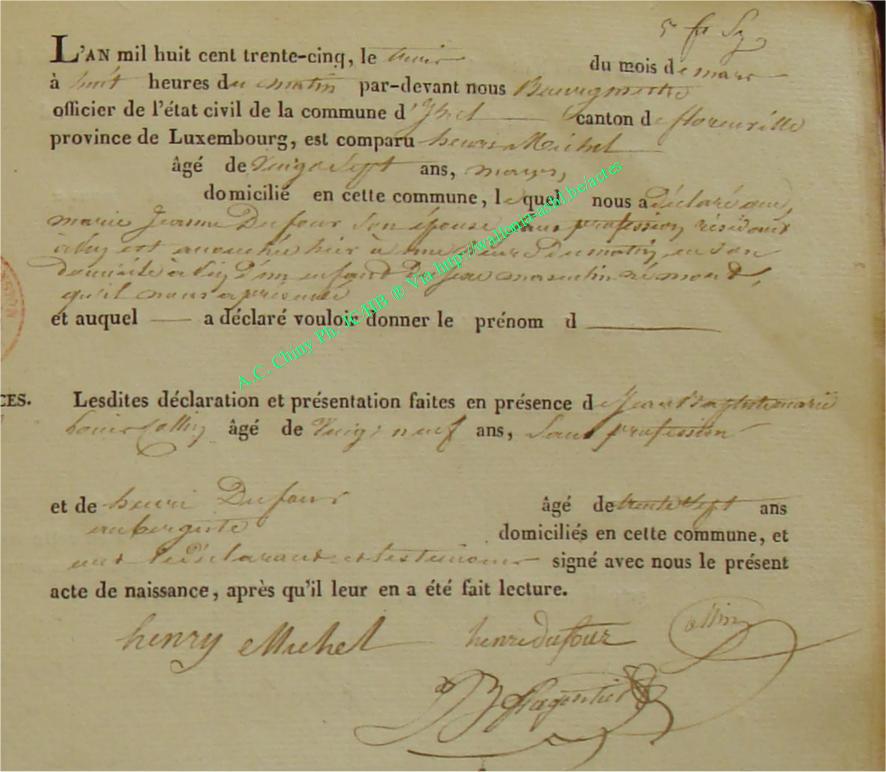 5 fr Sg
L'AN mil huit cent trente-cinq, le trois du mois de mars
à huit heures du matin par-devant nous Bourgmestre
officier de l'état civil de la commune d' canton de florenville
province de Luxembourg, est comparu henri Michel
âgé de Vingt Sept ans,
domicilié en cette commune, lequel nous a déclaré que
marie Jeanne Dufour Son épouse sans profession résidant
est accouchée hier à une heure Du matin en son
domicile à D'un enfant De Sexe masculin né mort
qu'il nous a présenté
et auquel — a déclaré vouloir donner le prénom d
CES. Lesdites déclaration et présentation faites en présence de Jean Baptiste marie
Louis Collin âgé de Vingt neuf ans, Sans profession
et de henri Dufour âgé de trente Sept ans
aubergiste domiciliés en cette commune, et
ont le Déclarant et les temoins signé avec nous le présent
acte de naissance, après qu'il leur en a été fait lecture.
henry Michel henri dufour Collin
A.C. Chiny Ph. JC HB ® Via http://wallonia-asbl.be/actes